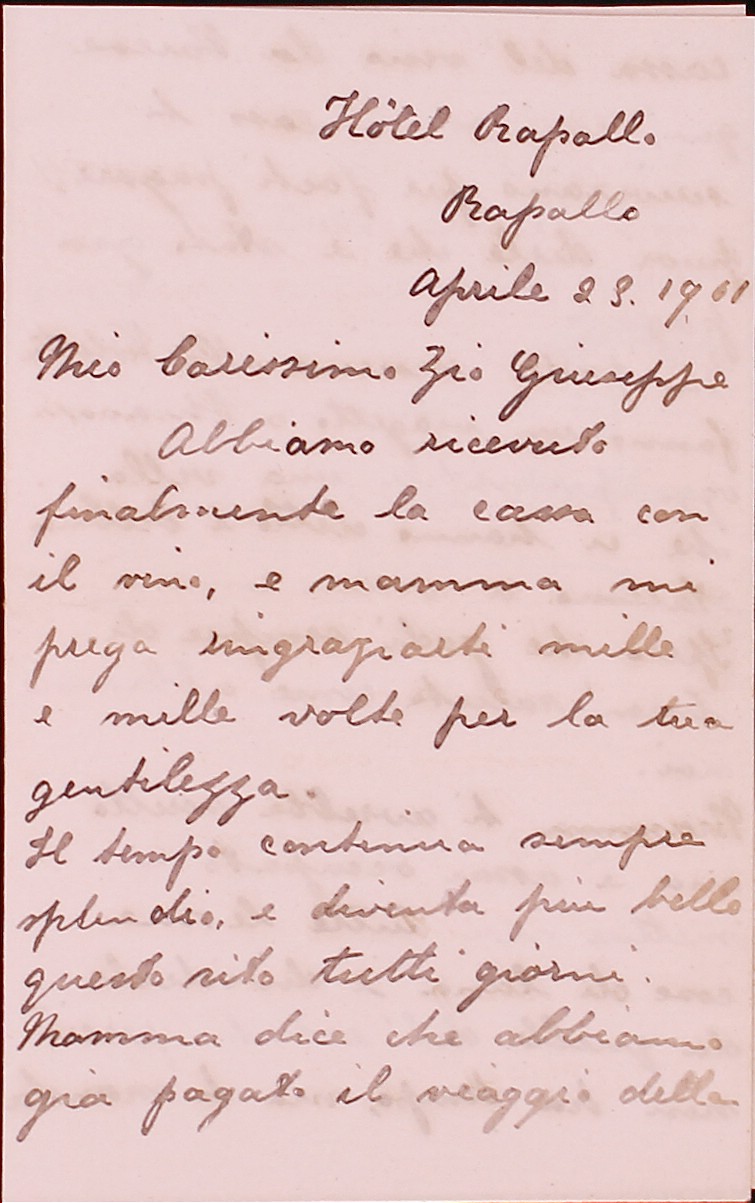 Hôtel Rapallo
Rapallo
Aprile 23. 1901
Mio Carissimo Zio Giuseppe
Abbiamo ricevuto
finalmente la cassa con
il vino, e mamma mi
prega ringraziarti mille
e mille volte per la tua
gentilezza.
Il tempo continua sempre
splendio, e diventa piu bello
questo sito tutti giorni.
Mamma dice che abbiamo
gia pagato il viaggio della